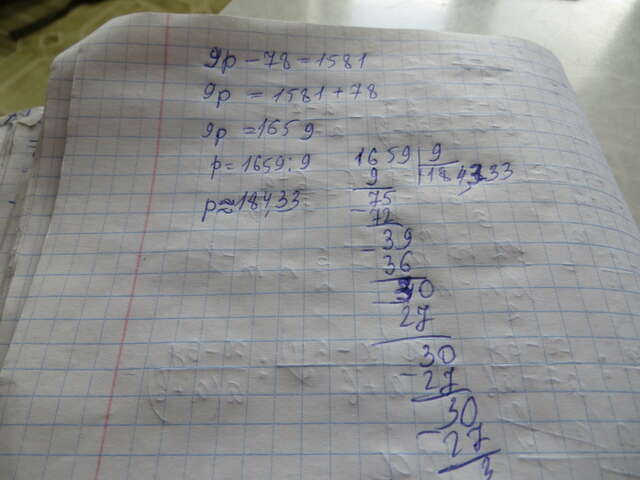 9p - 78 = 1581
9p = 1581 + 78
9p = 1659
p = 1659 : 9
p ≈ 184,33
1659 | 9
9 184,333
75
- 72
- 39
36
30
27
30
- 27
30
- 27
3